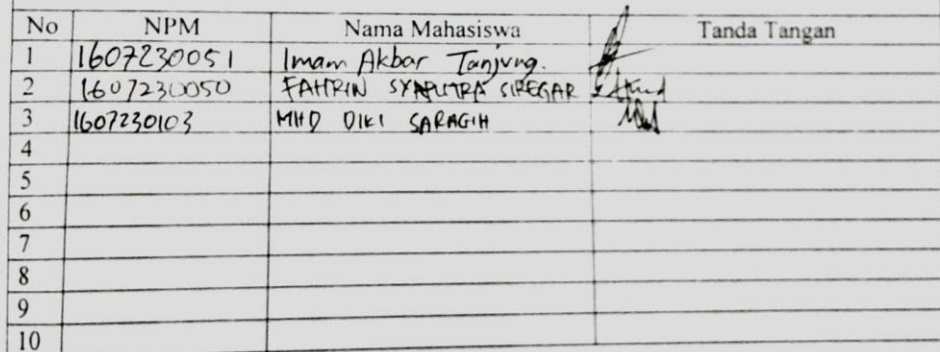 No NPM Nama Mahasiswa Tanda Tangan
1 1607230051 Imam Akbar Tanjung.
2 1607230050 FAHRIN SYAPUTRA SIREGAR
3 1607230103 MHD DIKI SARAGIH
4
5
6
7
8
9
10